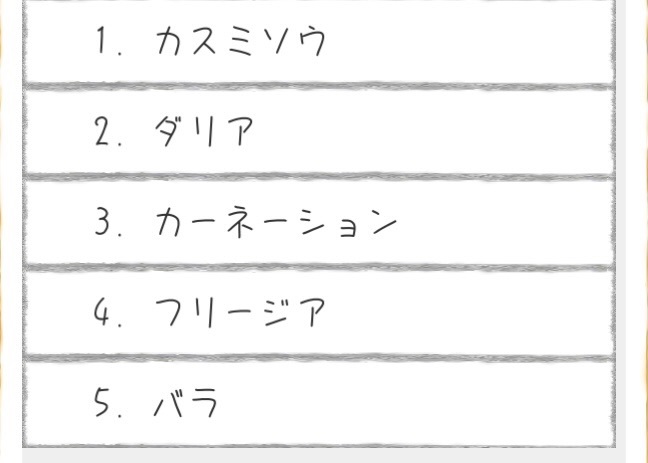 1. カスミソウ
2. ダリア
3. カーネーション
4. フリージア
5. バラ